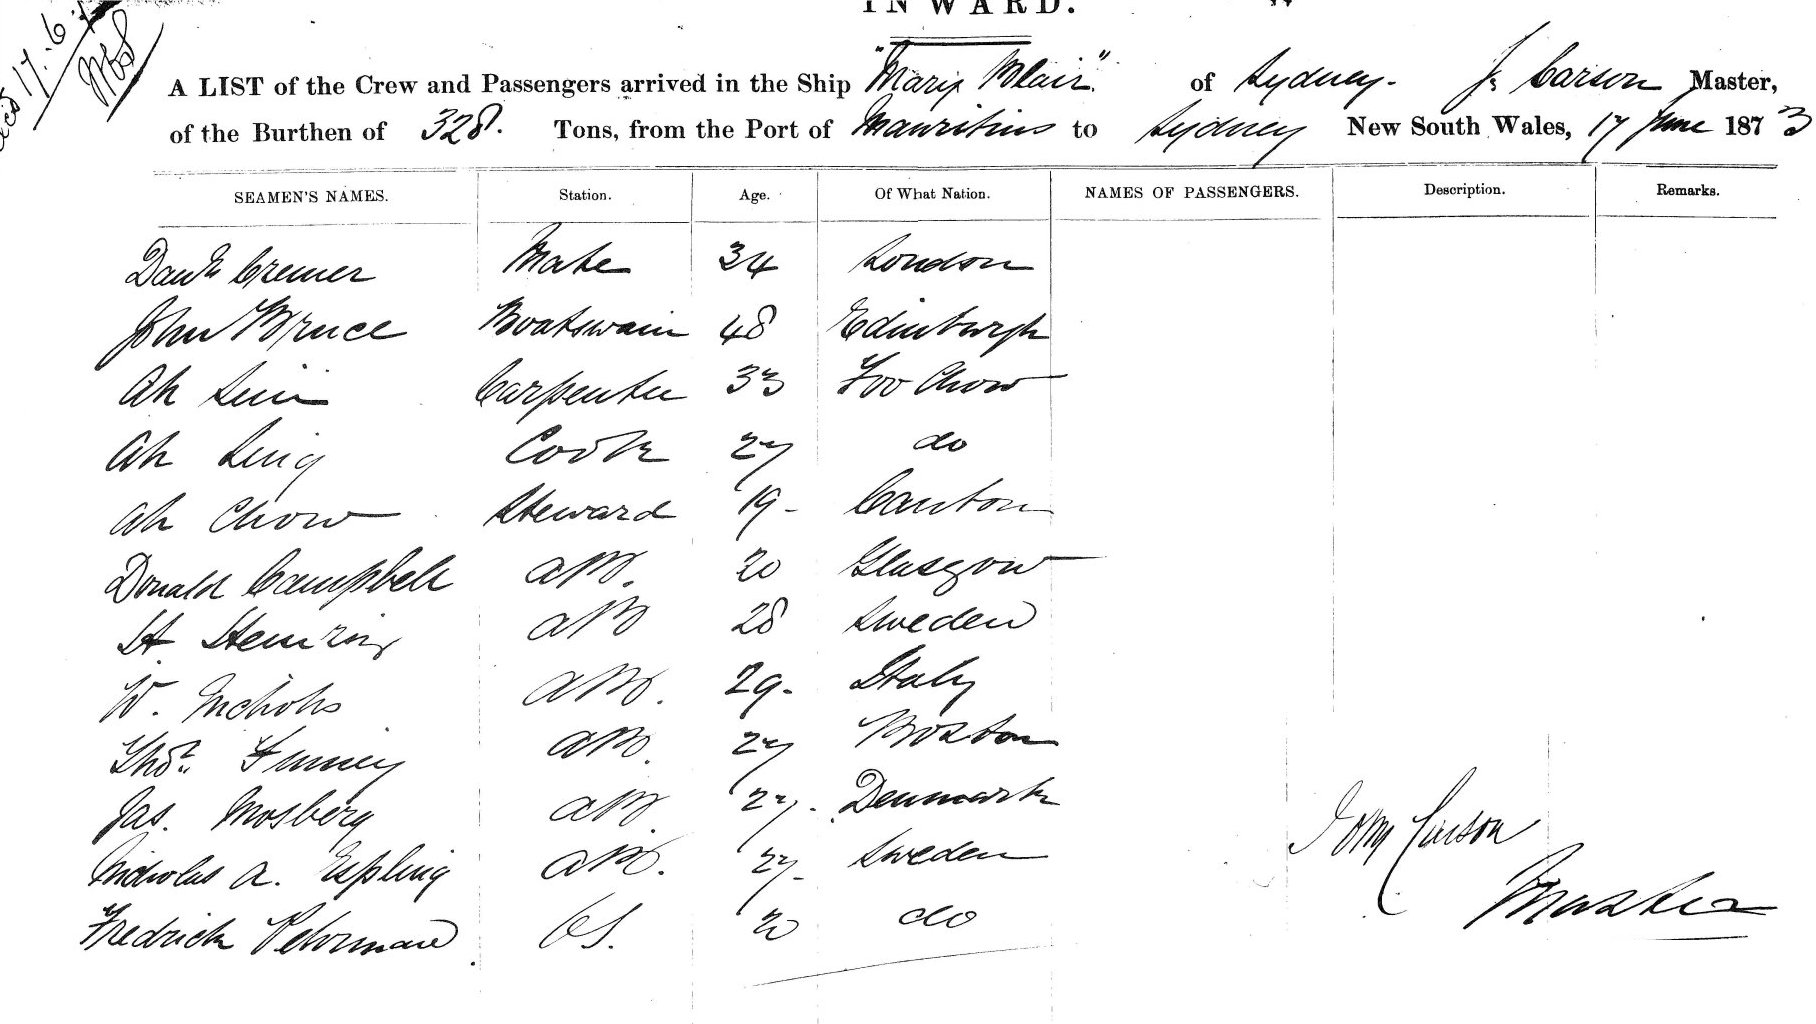 INWARD.
17.6.
A LIST of the Crew and Passengers arrived in the Ship "Mary Blair" of Sydney. J. Carson Master,
of the Burthen of 328. Tons, from the Port of Mauritius to Sydney New South Wales, 17 June 1873
SEAMEN'S NAMES. Station. Age. Of What Nation. NAMES OF PASSENGERS. Description. Remarks.
Danl Cremer Mate 34 London
John Bruce Boatswain 48 Edinburgh
Ah Carpenter 33 Foo Chow
Ah Ling Cook 27 do
Ah Chow Steward 19 - Canton
Donald Campbell AB. 20 Glasgow
H. AB 28 Sweden
W. Nichols AB. 29 - Italy
Thos. Finney AB. 27 Boston
Jas. Mosberg AB. 27 - Denmark
Nicholas A. Espling AB. 27 - Sweden
Fredrick OS. 20 do
John Carson
Master